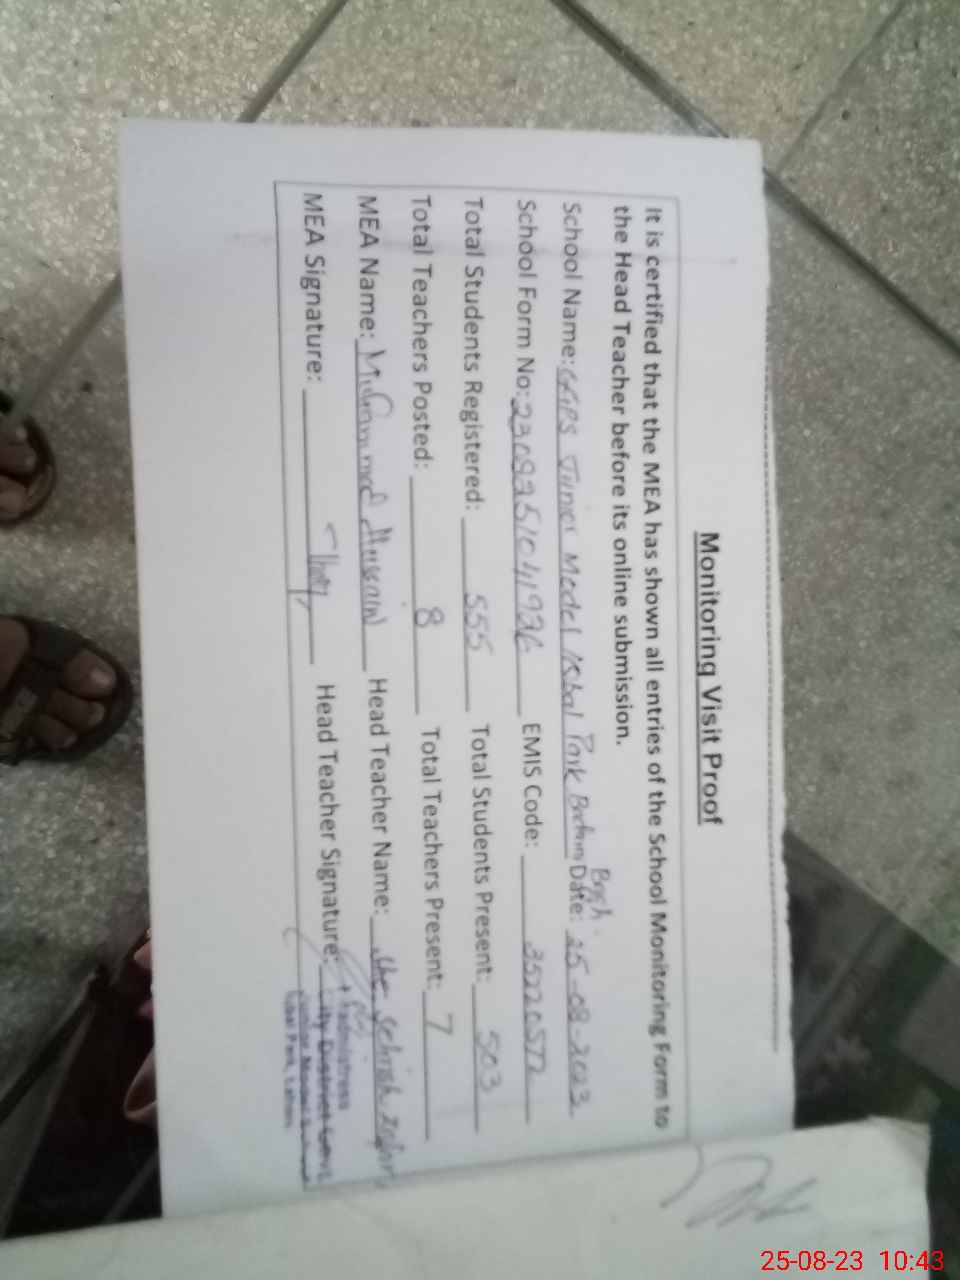 Monitoring Visit Proof
It is certified that the MEA has shown all entries of the School Monitoring Form to
the Head Teacher before its online submission.
School Name: GGPS Junior Model Park Date: 25-08-2023
School Form No: EMIS Code: 35220572
Total Students Registered: 555 Total Students Present: 503
Total Teachers Posted: 8 Total Teachers Present: 7
MEA Name: Muhammad Hussain Head Teacher Name:
MEA Signature: Head Teacher Signature:
City District Govt.
25-08-23 10:43